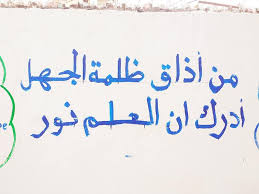 من أذاق ظلمة الجهل
أدرك ان العلم نور